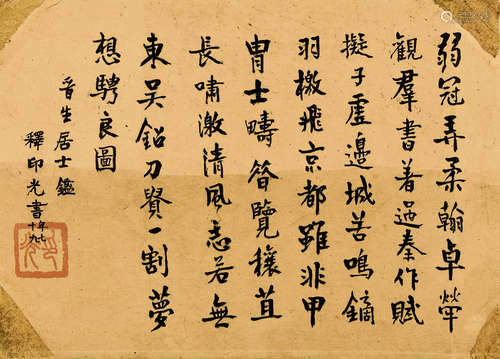 弱冠弄柔翰卓犖
觀羣書著過秦作賦
擬子虛邊城苦鳴鏑
羽檄飛京都雖非甲
胄士疇昔覽穰苴
長嘯激清風志若無
東吳鉛刀貴一割夢
想騁良圖
生居士鑑
釋印光書